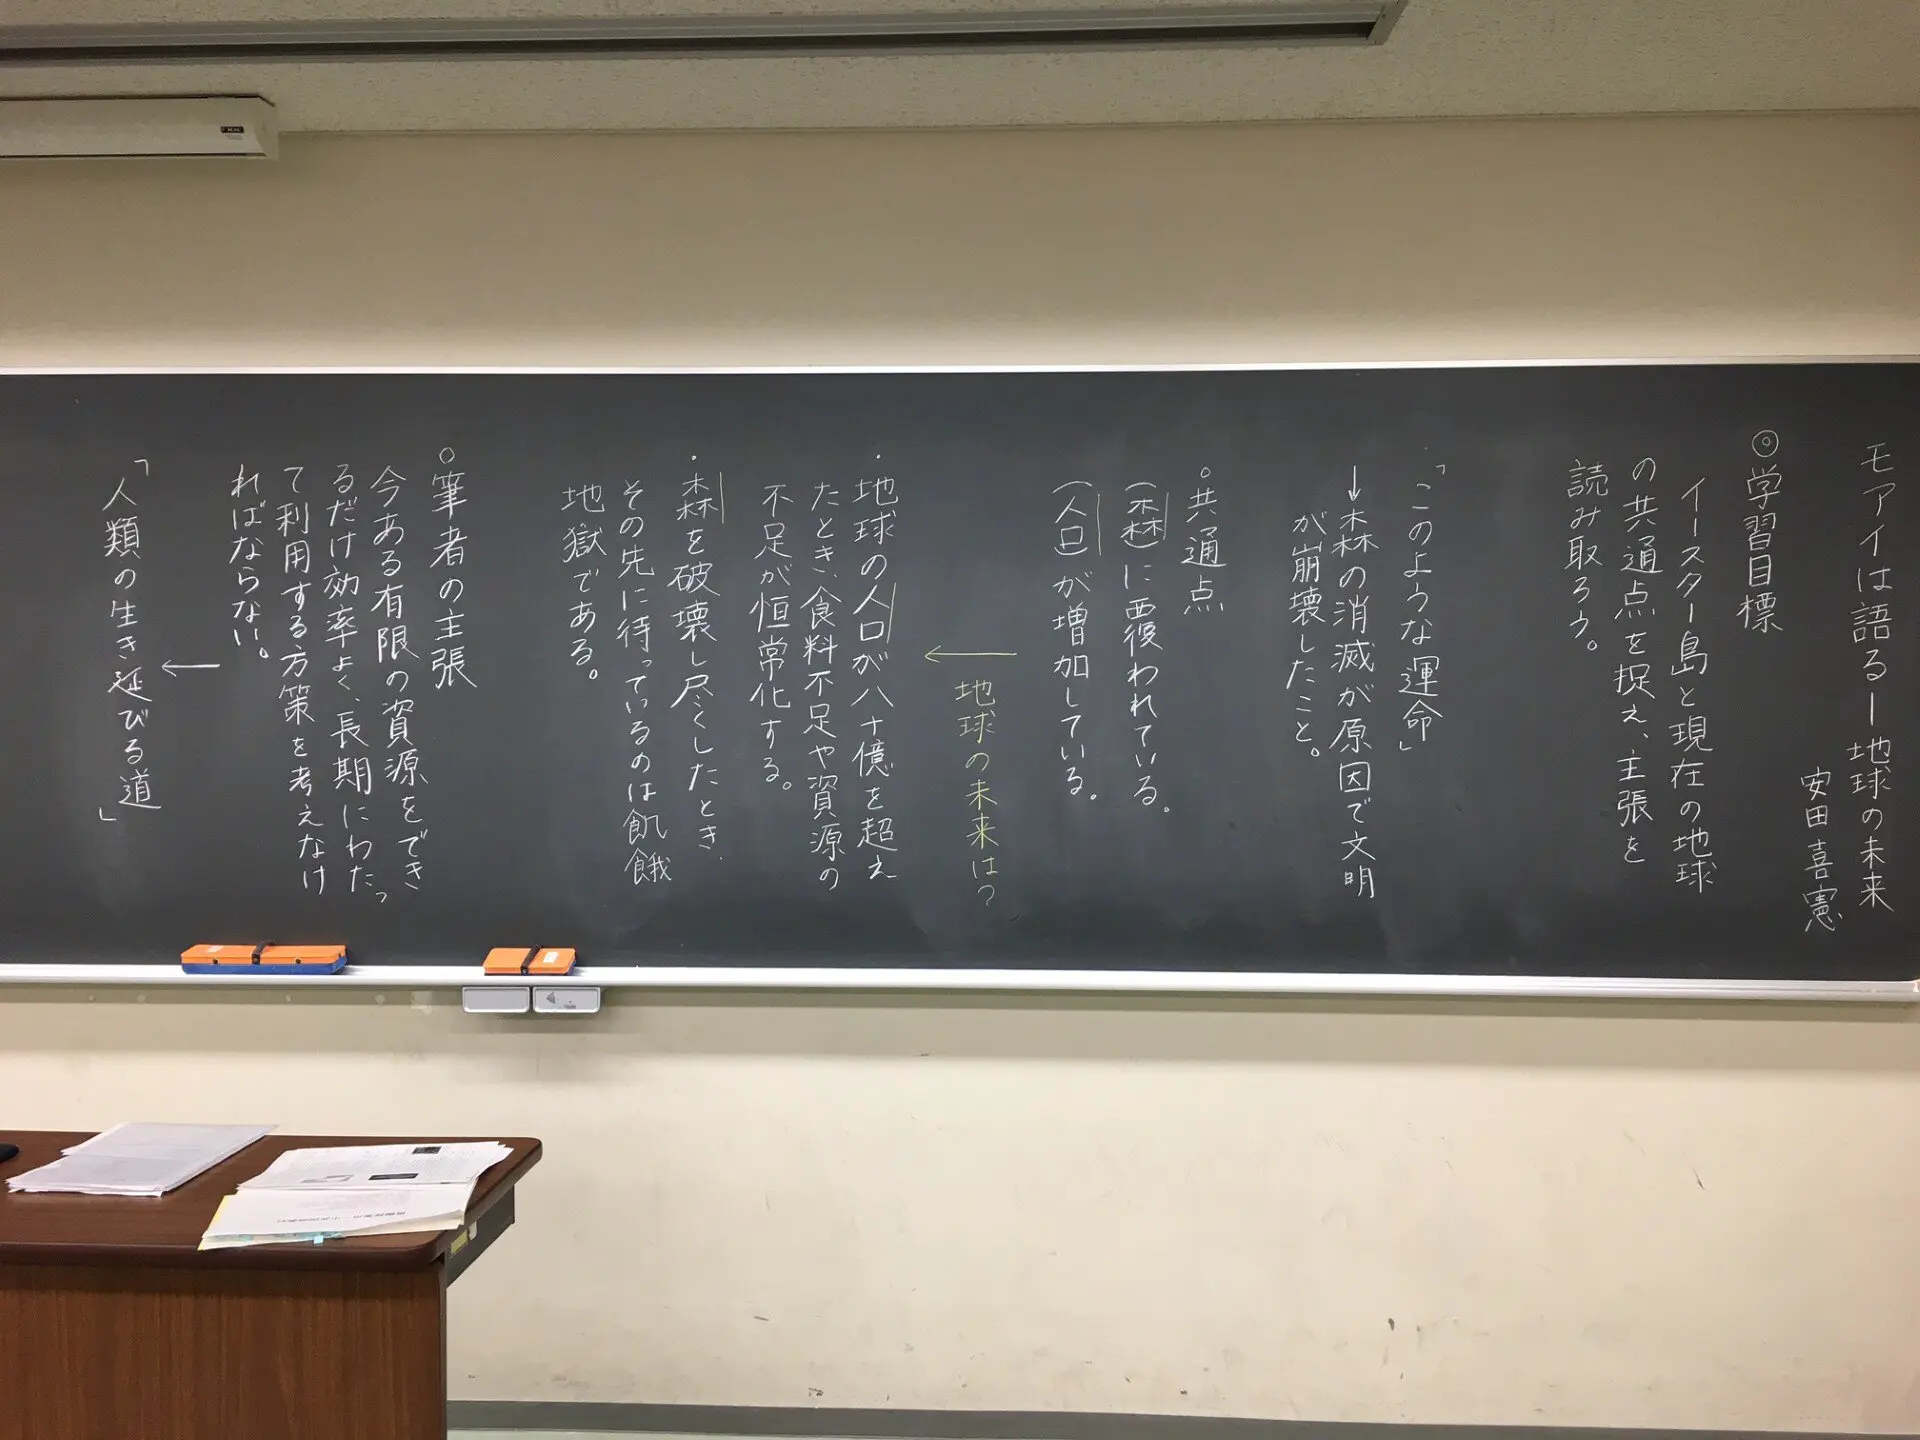 モアイは語る―地球の未来
安田喜憲
◎学習目標
イースター島と現在の地球
の共通点を捉え、主張を
読み取ろう。
「このような運命」
→森の消滅が原因で文明
が崩壊したこと。
○共通点
(森林)に覆われている。
(人口)が増加している。
地球の未来は?
・地球の人口が八十億を超え
たとき、食料不足や資源の
不足が恒常化する。
・森林を破壊し尽くしたとき、
その先に待っているのは飢餓
地獄である。
○筆者の主張
今ある有限の資源をでき
るだけ効率よく、長期にわたっ
て利用する方策を考えなけ
ればならない。
「人類の生き延びる道」